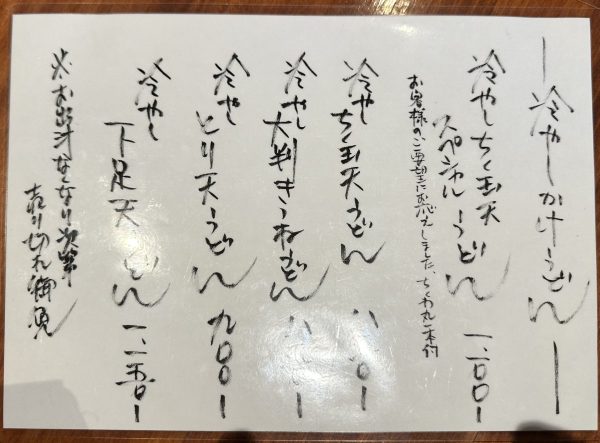 冷やしかけうどん
冷やしちく玉天
スペシャルうどん 一、二〇〇ー
お客様のご要望にお応えしました、ちくわ丸一本付
冷やし
ちく玉天うどん 八 〇ー
冷やし
大判きつねうどん 八 ー
冷やし
とり天うどん 九〇〇ー
冷やし
下足天 どん 一、一五〇ー
※お出汁なくなり次第
売り切れ御免